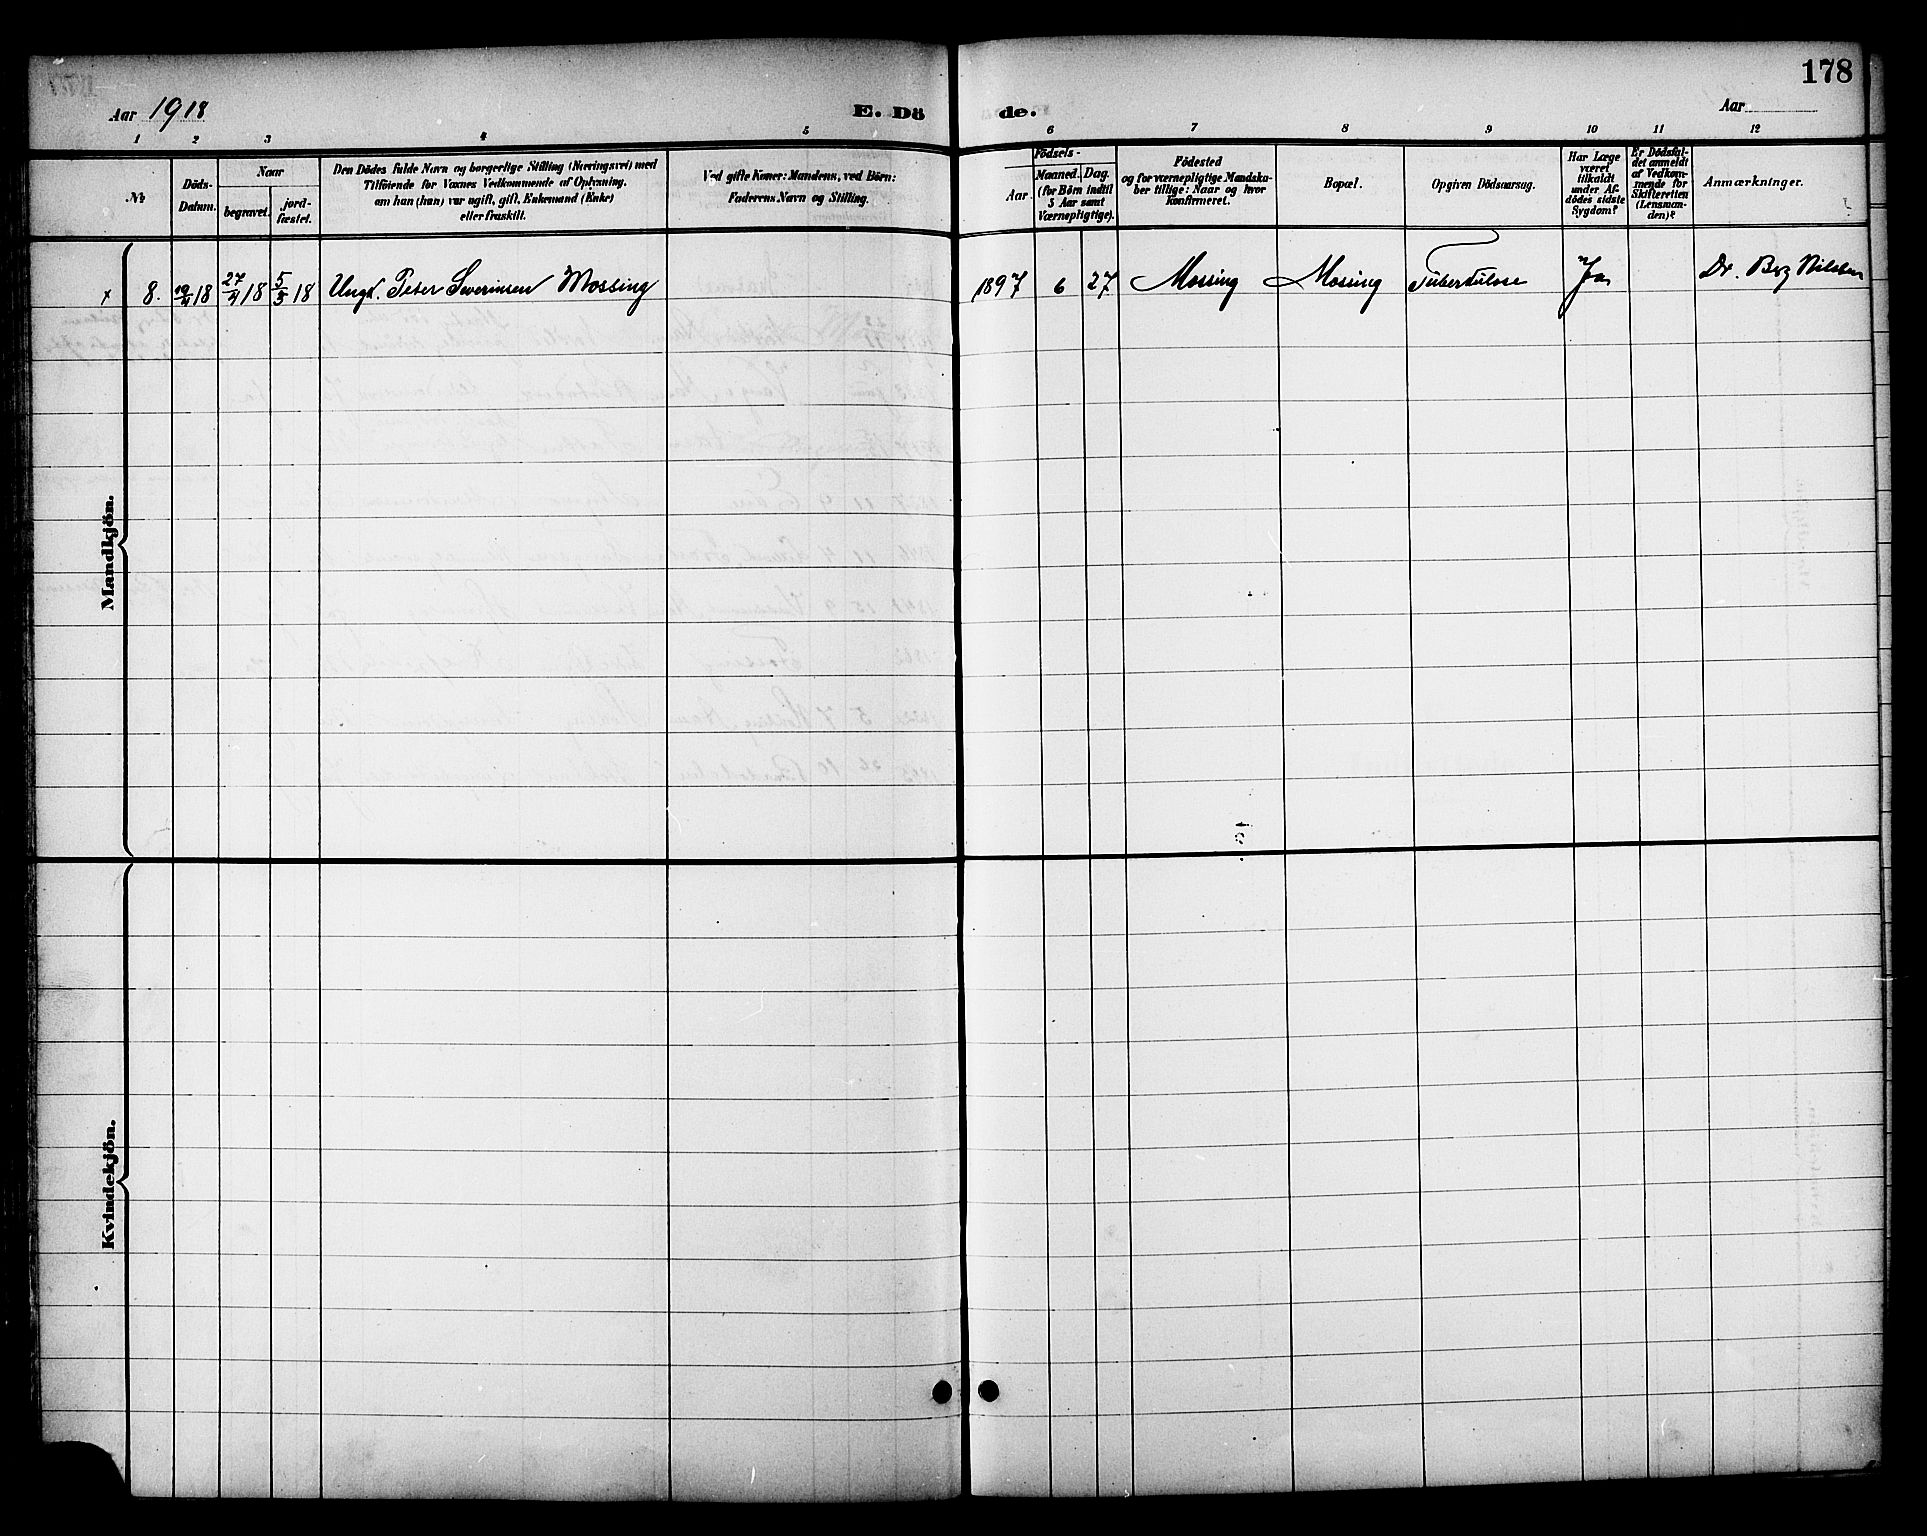 178
Aar 1918 E. Dö de. Aar
1 2 3 4 5 6 7 8 9 10 11 12
№
Döds-
Datum.
Naar
begravet.
jord-
fæstet.
Den Dödes fulde Navn og borgerlige Stilling (Næringsvei) med
Tilföiende for Voxnes Vedkommende af Oplysning,
om han (hun) var ugift, gift, Enkemand (Enke)
eller fraskilt.
Ved gifte Koner: Mandens, ved Börn:
Faderens Navn og Stilling.
Födsels-
Aar.
Maaned. Dag.
(for Börn indtil
5 Aar samt
Værnepligtige).
Födested
og for værnepligtige Mandska-
ber tillige: Naar og hvor
Konfirmeret.
Bopæl.
Opgiven Dödsaarsag.
Har Læge
været
tilkaldt
under Af-
dödes sidste
Sygdom?
Er Dödsfal-
det anmeldt
af Vedkom-
mende for
Skifteretten
(Lensman-
den)?
Anmærkninger.
x 8. 19/4 18 27/4 18 5/5 18 Ungk. Peter Severinsen Mossing 1897 6 27 Mossing Mossing Tuberkulose Ja Dr. Berg Nilsen
Mandkjön.
Kvindekjön.